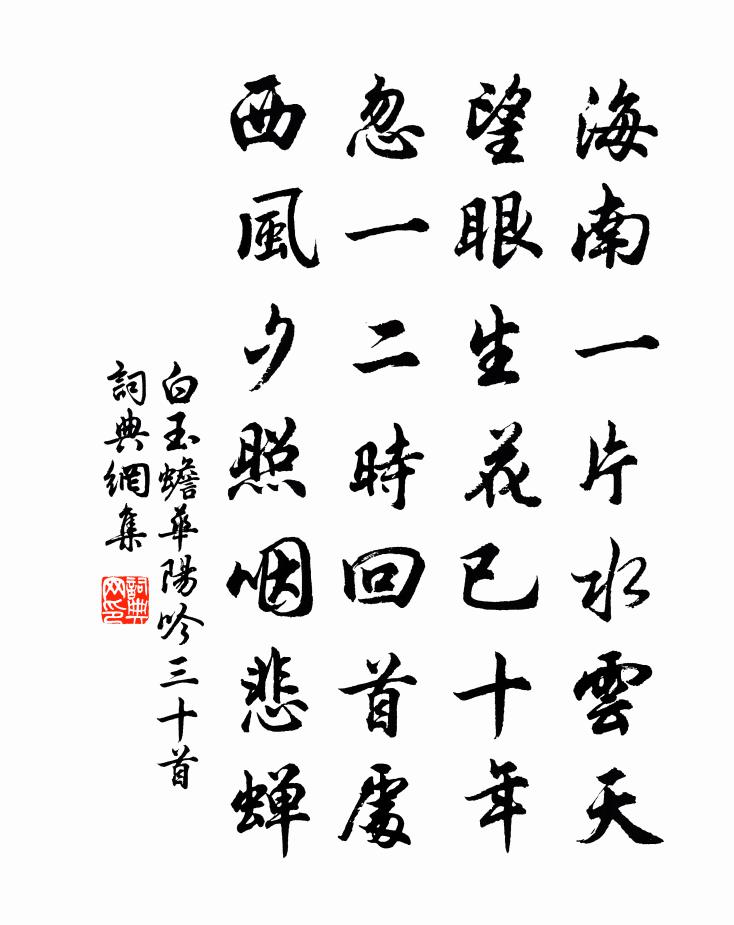 海南一片水雲天
望眼生花已十年
忽一二時回首處
西風夕照咽悲蟬
白玉蟾華陽吟三十首
詞典網集
詞典網印